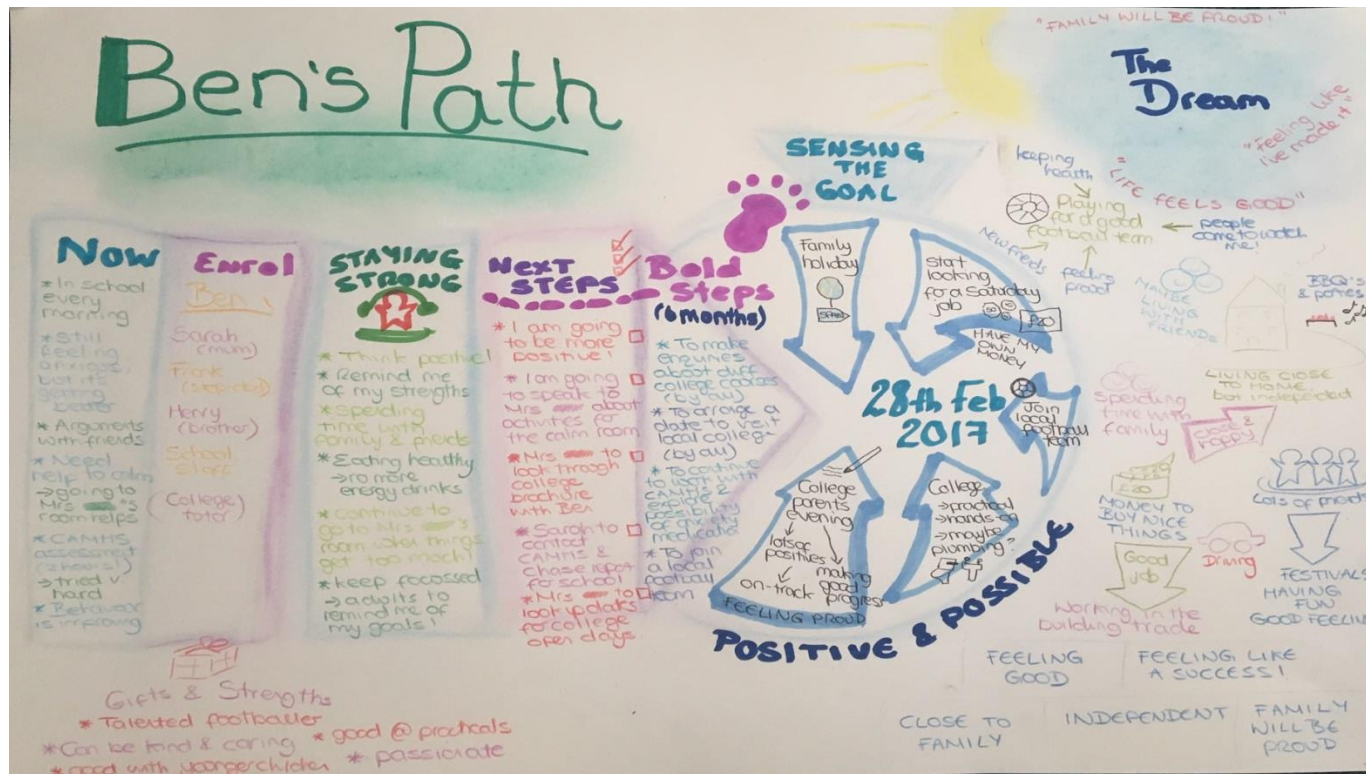 Ben's Path
Now
* In school
every
morning
* Still
feeling
anxious,
but it's
getting
better
* Arguments
with friends
* Need
help to calm
→ going to
Mrs 's
room helps
* CAMHS
assessment
(2 hours!)
→ tried v.
hard
* Behaviour
is improving
Enrol
Ben!
Sarah
(mum)
Frank
(stepdad)
Henry
(brother)
School
staff
(College
tutor)
STAYING
STRONG
* Think positive!
* Remind me
of my strengths
* Spending
time with
family & friends
* Eating healthy
→ no more
energy drinks
* continue to
go to Mrs 's
room when things
get too much!
* keep focussed
→ adults to
remind me of
my goals!
NEXT
STEPS
* I am going
to be more
positive!
* I am going
to speak to
Mrs about
activities for
the calm room
* Mrs to
look through
college
brochure
with Ben
* Sarah to
contact
CAMHS &
chase report
for school
* Mrs to
look up dates
for college
open days.
Bold
Steps
(6 months)
* To make
enquiries
about diff
college courses
(by all)
* To arrange a
date to visit
local college
(by all)
* To continue
to work with
CAMHS
* To join
a local
football
team
SENSING
THE
GOAL
Family
holiday
SPAIN
start
looking
for a Saturday
job
£20
HAVE MY
OWN
MONEY
28th Feb
2017
Join
local
football
team
College
parents
evening
lots of
positives
making
good
progress
on-track
FEELING PROUD
College
→ practical
→ hands-on
→ maybe
plumbing?
POSITIVE & POSSIBLE
"FAMILY WILL BE PROUD!"
The
Dream
"Feeling like
I've made it"
"LIFE FEELS GOOD"
keeping
health
Playing
for a good
football team
people
come to watch
me!
feeling
proud
MAYBE
LIVING
WITH
FRIENDS
BBQ's
& parties
LIVING CLOSE
TO HOME,
but independent
Spending
time with
family
close &
happy
£20
MONEY TO
BUY NICE
THINGS
Good
job
Working in the
building trade
Driving
Lots of
FESTIVALS
HAVING
FUN
GOOD
FEELING
GOOD
FEELING LIKE
A SUCCESS!
CLOSE TO
FAMILY
INDEPENDENT
FAMILY
WILL BE
PROUD
Gifts & Strengths
* Talented footballer
* good @ practicals
* Can be kind & caring
* passionate
* good with younger children